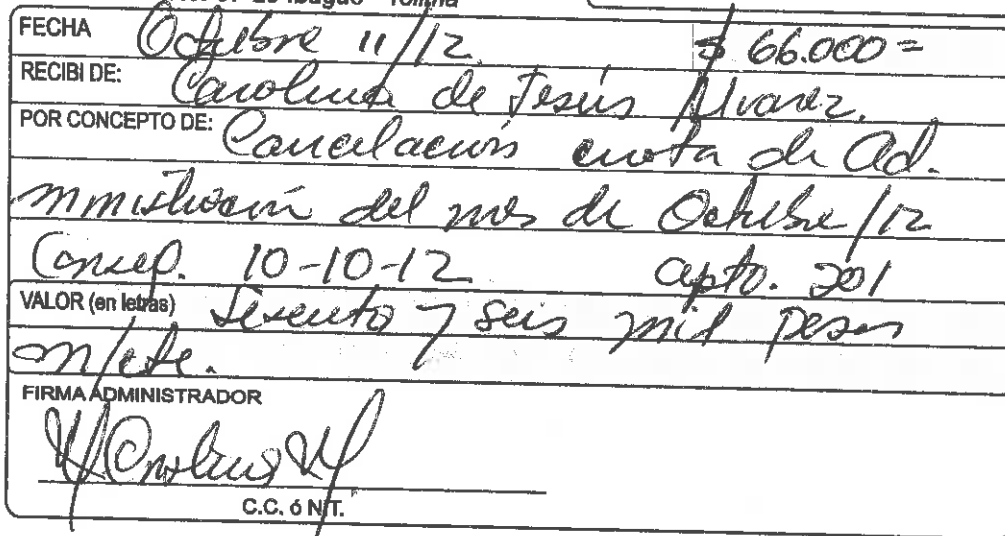 Ibagué - Tolima
FECHA Octubre 11/12 $ 66.000=
RECIBI DE: Carolina de Jesús Alvarez.
POR CONCEPTO DE: Cancelación cuota de Ad.
ministración del mes de Octubre/12
Consep. 10-10-12 apto. 201
VALOR (en letras) Sesenta y seis mil pesos
m/cte.
FIRMA ADMINISTRADOR
C.C. ó NIT.